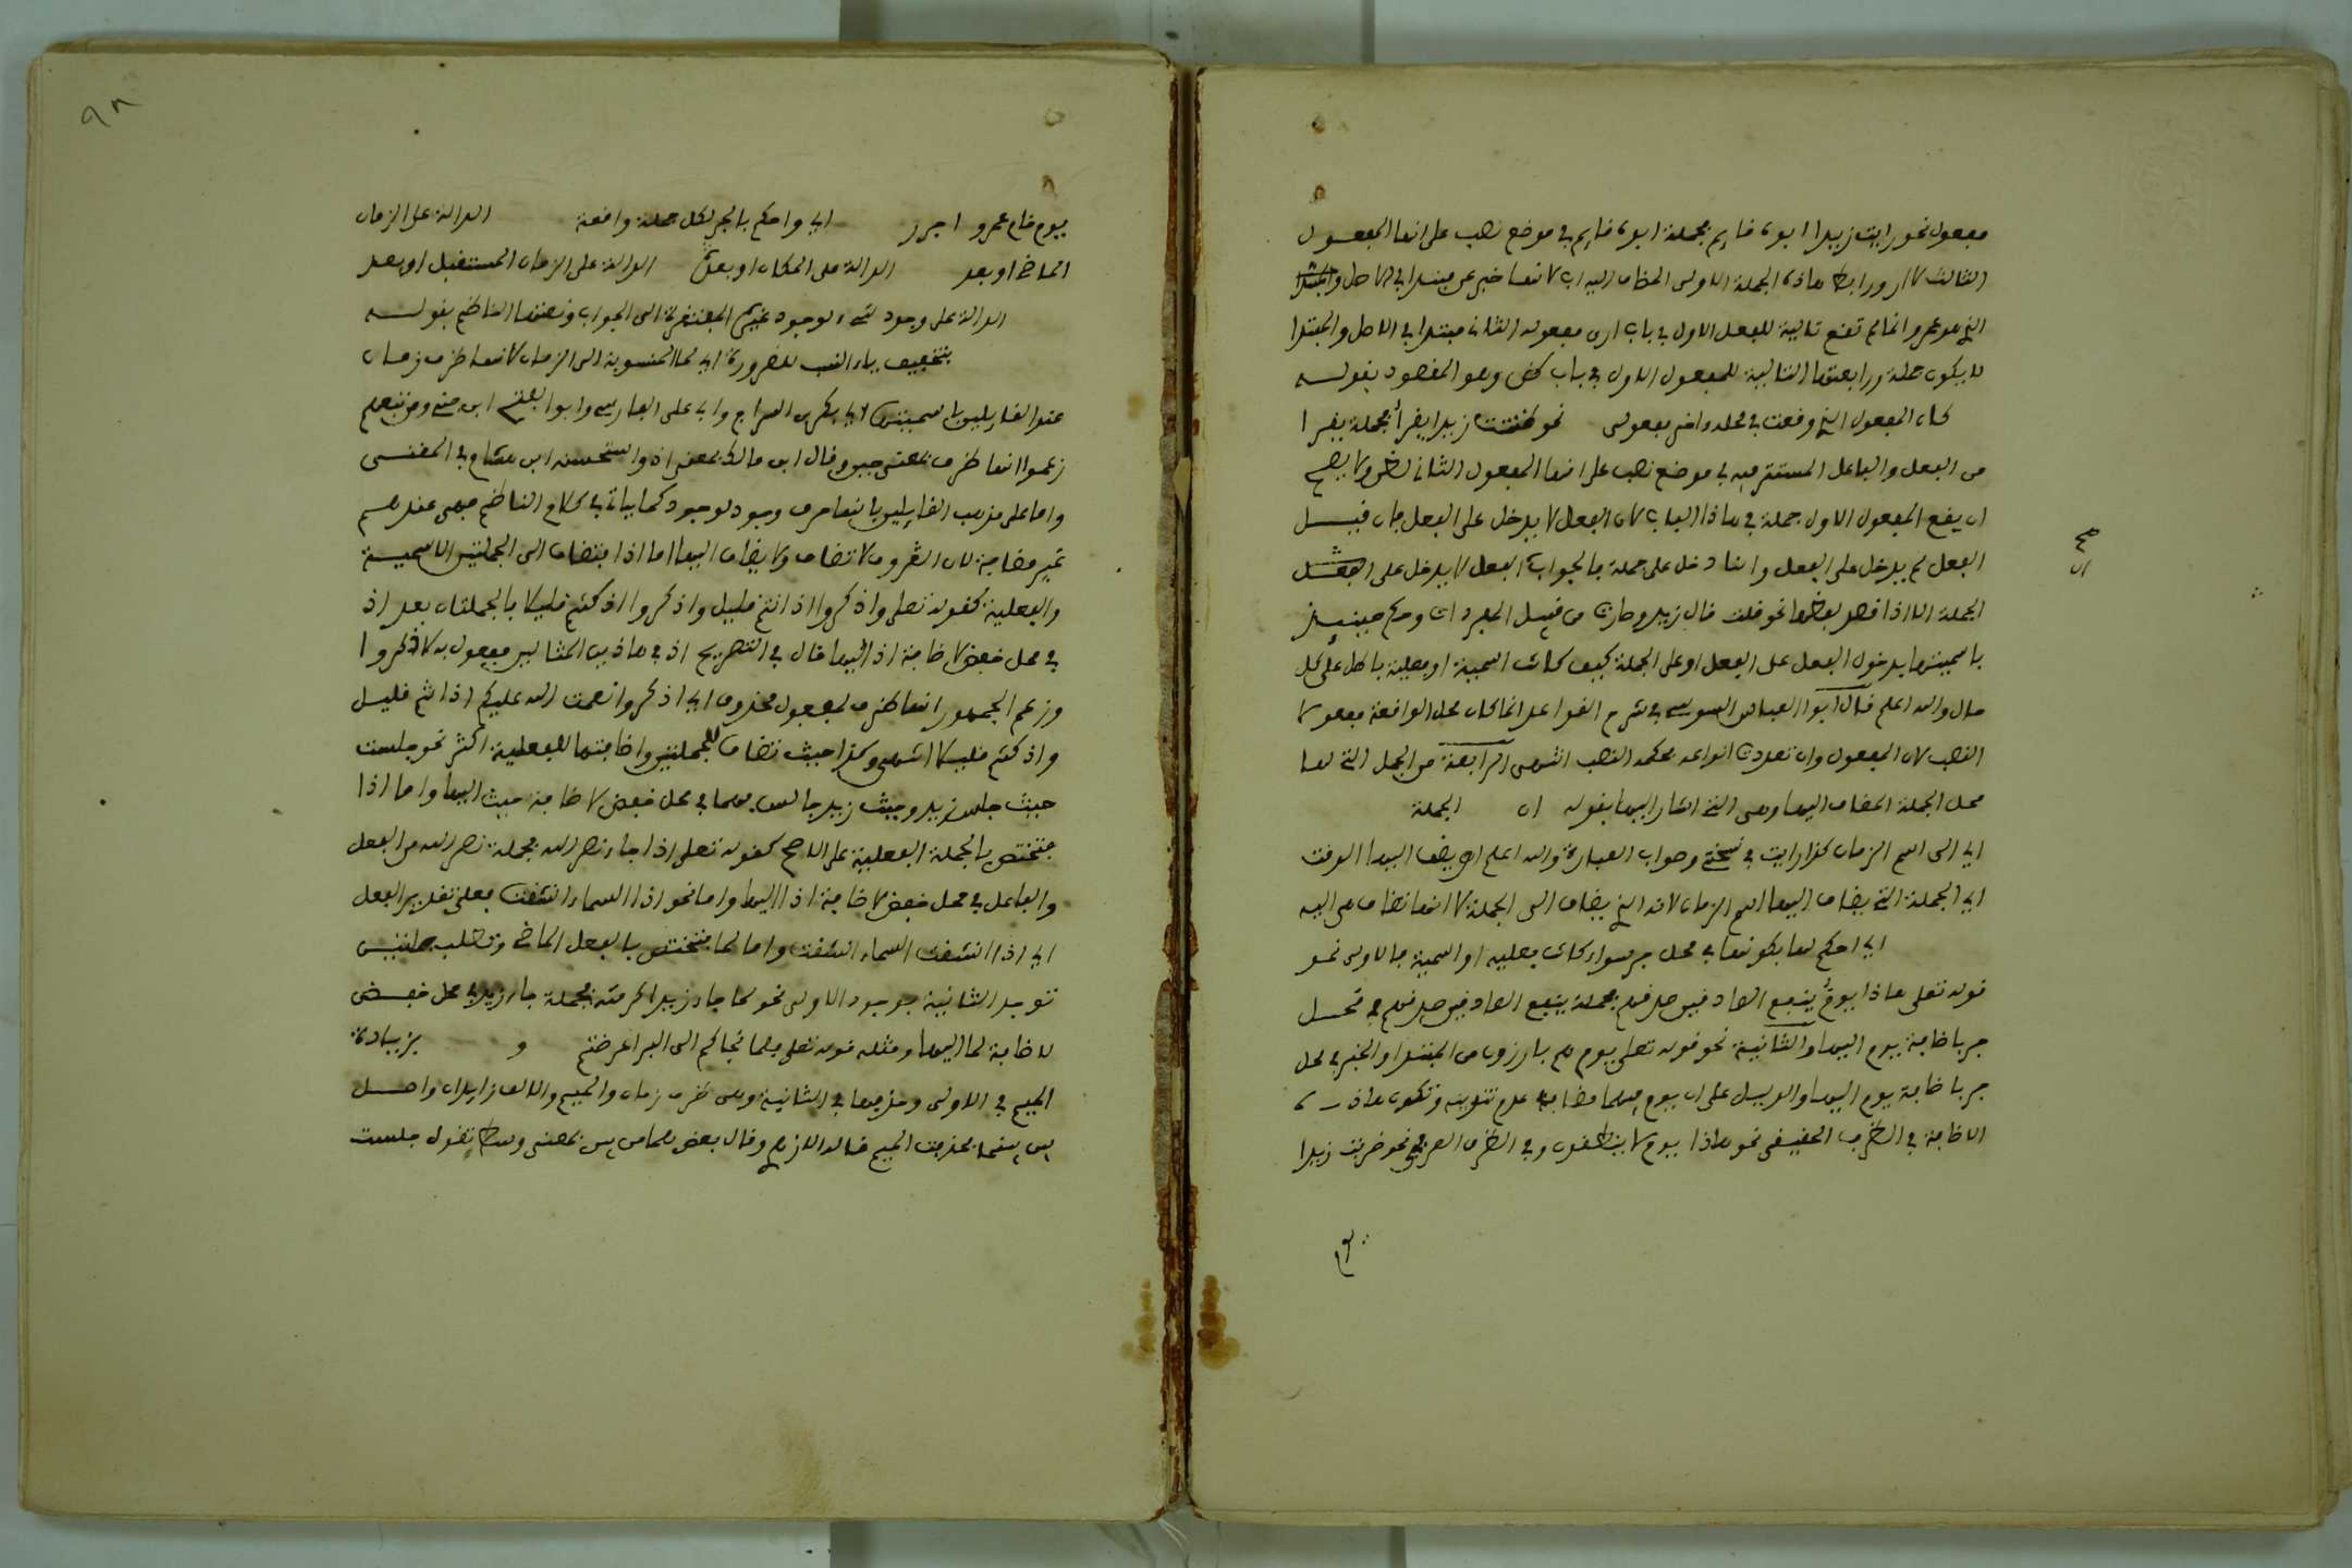 مفعول نحو رايت زيدا ابوه قايم فجملة ابوه قايم في موضع نصب على انها المفعول
الثالث لارى ورابط هاذه الجملة الاولى المضاف اليه اب لانها خبر عن مبتدا في الاصل والمبتدا
الذي هو عمرو انما لم تقع تالية للمفعول الاول في باب ارى مفعوله الثاني مبتدا في الاصل والمبتدا
لا يكون جملة ورابعتها التالية للمفعول الاول في باب ظن وهو المقصود بقوله
كان المفعول الذي وقعت في محله ثاني مفعولي نحو ظننت زيدا يقرأ فجملة يقرا
من الفعل والفاعل المستتر فيه في موضع نصب على انها المفعول الثاني لظن ولا يصح
ان يقع المفعول الاول جملة في هاذا الباب لان الفعل لا يدخل على الفعل فان قيل
الفعل لم يدخل على الفعل وانما دخل على جملة فالجواب الفعل لا يدخل على
الجملة الا اذا قصد لفظها نحو قلت قال زيد وصارت من قبيل المفردات وحكم حينيذ
باسميتها فدخول الفعل على الفعل او على الجملة كيف كانت اسمية او فعلية باطل على كل
حال والله اعلم قال ابو العباس السوسي في شرح القواعد انما كان محل الواقعة مفعولا
النصب لان المفعول وان تعددت انواعه محكمه النصب انتهى الرابعة من الجمل التي لها
محل الجملة المضاف اليها وهي التي اشار اليها بقوله ان الجملة
اي الى اسم الزمان كذا رايت في نسختي وصواب العبارة والله اعلم ان يضف اليها الوقت
اي الجملة التي يضاف اليها اسم الزمان لانه الذي يضاف الى الجملة لا انها تضاف هي اليه
اي احكم لها بكونها في محل جر سواء كانت فعلية او اسمية فالاولى نحو
قوله تعلى هاذا يوم ينفع الصادقين صدقهم فجملة ينفع الصادقين صدقهم في محل
جر باضافة يوم اليها والثانية نحو قوله تعلى يوم هم بارزون من المبتدا والخبر في محل
جر باضافة يوم اليها والدليل على ان يوم فيهما مضاف عدم تنوينه وتكون هاذه
الاضافة في الظرف الحقيقي نحو هاذا يوم لا ينطقون وفي الظرف العرفي نحو ضربت زيدا
يوم
صح
ان
٩٨
يوم قام عمرو اجرر اي واحكم بالجر لكل جملة واقعة الدالة على الزمان
الماضي او بعد الدالة على المكان او بعد الدالة على الزمان المستقبل او بعد
الدالة على وجود شيء لوجود غيره المفتقرة الى الجواب ونعتها الناظم بقوله
بتخفيف ياء النسب للضرورة اي لما المنسوبة الى الزمان لانها ظرف زمان
عند القايلين باسميتها ابي بكر بن السراج وابي على الفارسي وابو الفتح ابن جني ومن تبعهم
زعموا انها ظرف بمعنى حين وقال ابن مالك بمعنى اذ واستحسنه ابن هشام في المغني
واما على مذهب القايلين بانها حرف وجود لوجود كما ياتي في كلام الناظم فهي عندهم
غير مضافة لان الحروف لا تضاف ولا يضاف اليها اما اذ فتضاف الى الجملتين الاسمية
والفعلية كقوله تعلى واذكروا اذ انتم قليل واذكروا اذ كنتم قليلا فالجملتان بعد اذ
في محل خفض لاضافة اذ اليها قال في التصريح اذ في هاذين المثالين مفعول به لاذكروا
وزعم الجمهور انها ظرف لمفعول محذوف اي اذكروا نعمت الله عليكم اذ انتم قليل
واذ كنتم قليلا انتهى وكذا حيث تضاف للجملتين واضافتها للفعلية اكثر نحو جلست
حيث جلس زيد وحيث زيد جالس فهما في محل خفض لاضافة حيث اليها واما اذا
فتختص بالجملة الفعلية على الاصح كقوله تعلى اذا جاء نصر الله فجملة نصر الله من الفعل
والفاعل في محل خفض لاضافة اذا اليها واما نحو اذا السماء انشقت فعلى تقدير الفعل
اي اذا انشقت السماء انشقت واما لما فتختص بالفعل الماضي وتطلب جملتين
توجد الثانية بوجود الاولى نحو لما جاء زيد اكرمته فجملة جاء زيد في محل خفض
لاضافة لما اليها ومثله قوله تعلى فلما نجاكم الى البر اعرضتم و بزيادة
الميم في الاولى وحذفها في الثانية وهي ظرف زمان والميم والالف زايدان واصل
بين بينما بحذف الميم قاله اللازمي وقال بعض بمعنى وسط تقول جلست